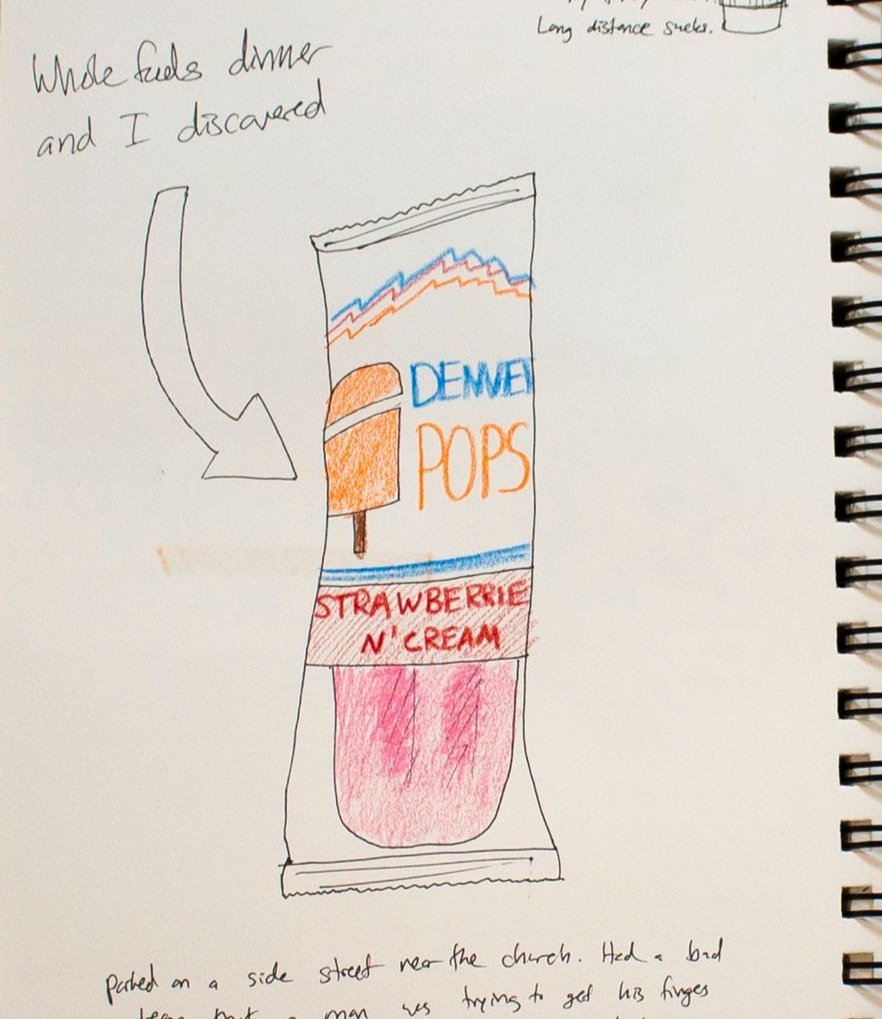 Long distance sucks.
Whole foods dinner
and I discovered
DENVER
POPS
STRAWBERRIE
N' CREAM
parked on a side street near the church. Had a bad
man was trying to get his fingers